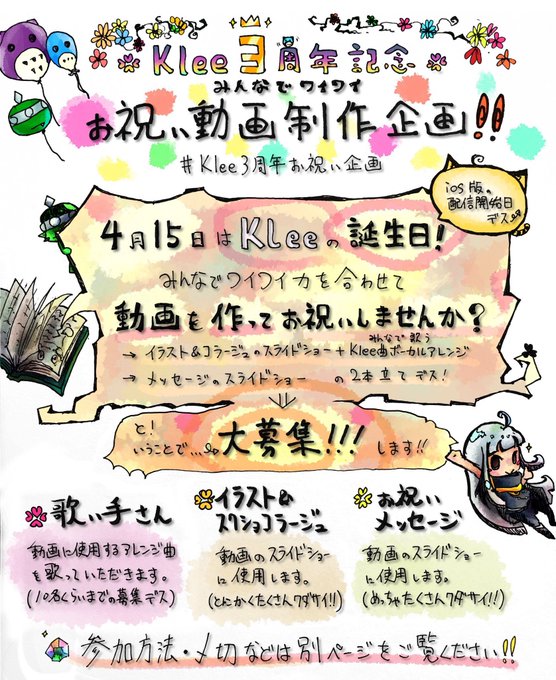 Klee3周年記念
みんなでワイワイ
お祝い動画制作企画!!
#Klee3周年お祝い企画
iOS版の
配信開始日
デス
4月15日はKLeeの誕生日!
みんなでワイワイ力を合わせて
動画を作ってお祝いしませんか?
みんなで歌う
→ イラスト&コラージュのスライドショー+Klee曲ボーカルアレンジ
→ メッセージのスライドショー の2本立てデス!
と!
いうことで…大募集!!!します!!
歌い手さん
動画に使用するアレンジ曲
を歌っていただきます。
(10名くらいまでの募集デス)
イラスト&
スクショコラージュ
動画のスライドショー
に使用します。
(とにかくたくさんクダサイ!!)
お祝い
メッセージ
動画のスライドショー
に使用します。
(めっちゃたくさんクダサイ!!)
参加方法・〆切などは別ページをご覧ください!!